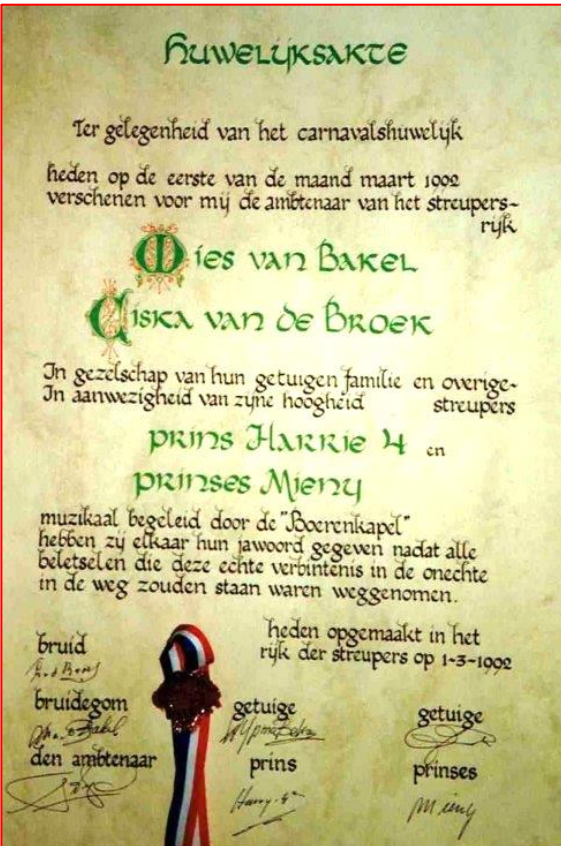 Huwelijksakte
Ter gelegenheid van het carnavalshuwelijk
heden op de eerste van de maand maart 1992
verschenen voor mij de ambtenaar van het streupers-
rijk
Mies van Bakel
Ciska van de Broek
In gezelschap van hun getuigen familie en overige-
In aanwezigheid van zijne hoogheid streupers
prins Harrie 4 en
prinses Mieny
muzikaal begeleid door de "Boerenkapel"
hebben zij elkaar hun jawoord gegeven nadat alle
beletselen die deze echte verbintenis in de onechte
in de weg zouden staan waren weggenomen.
heden opgemaakt in het
rijk der streupers op 1-3-1992
bruid
bruidegom
getuige
getuige
den ambtenaar
prins
prinses
Mieny